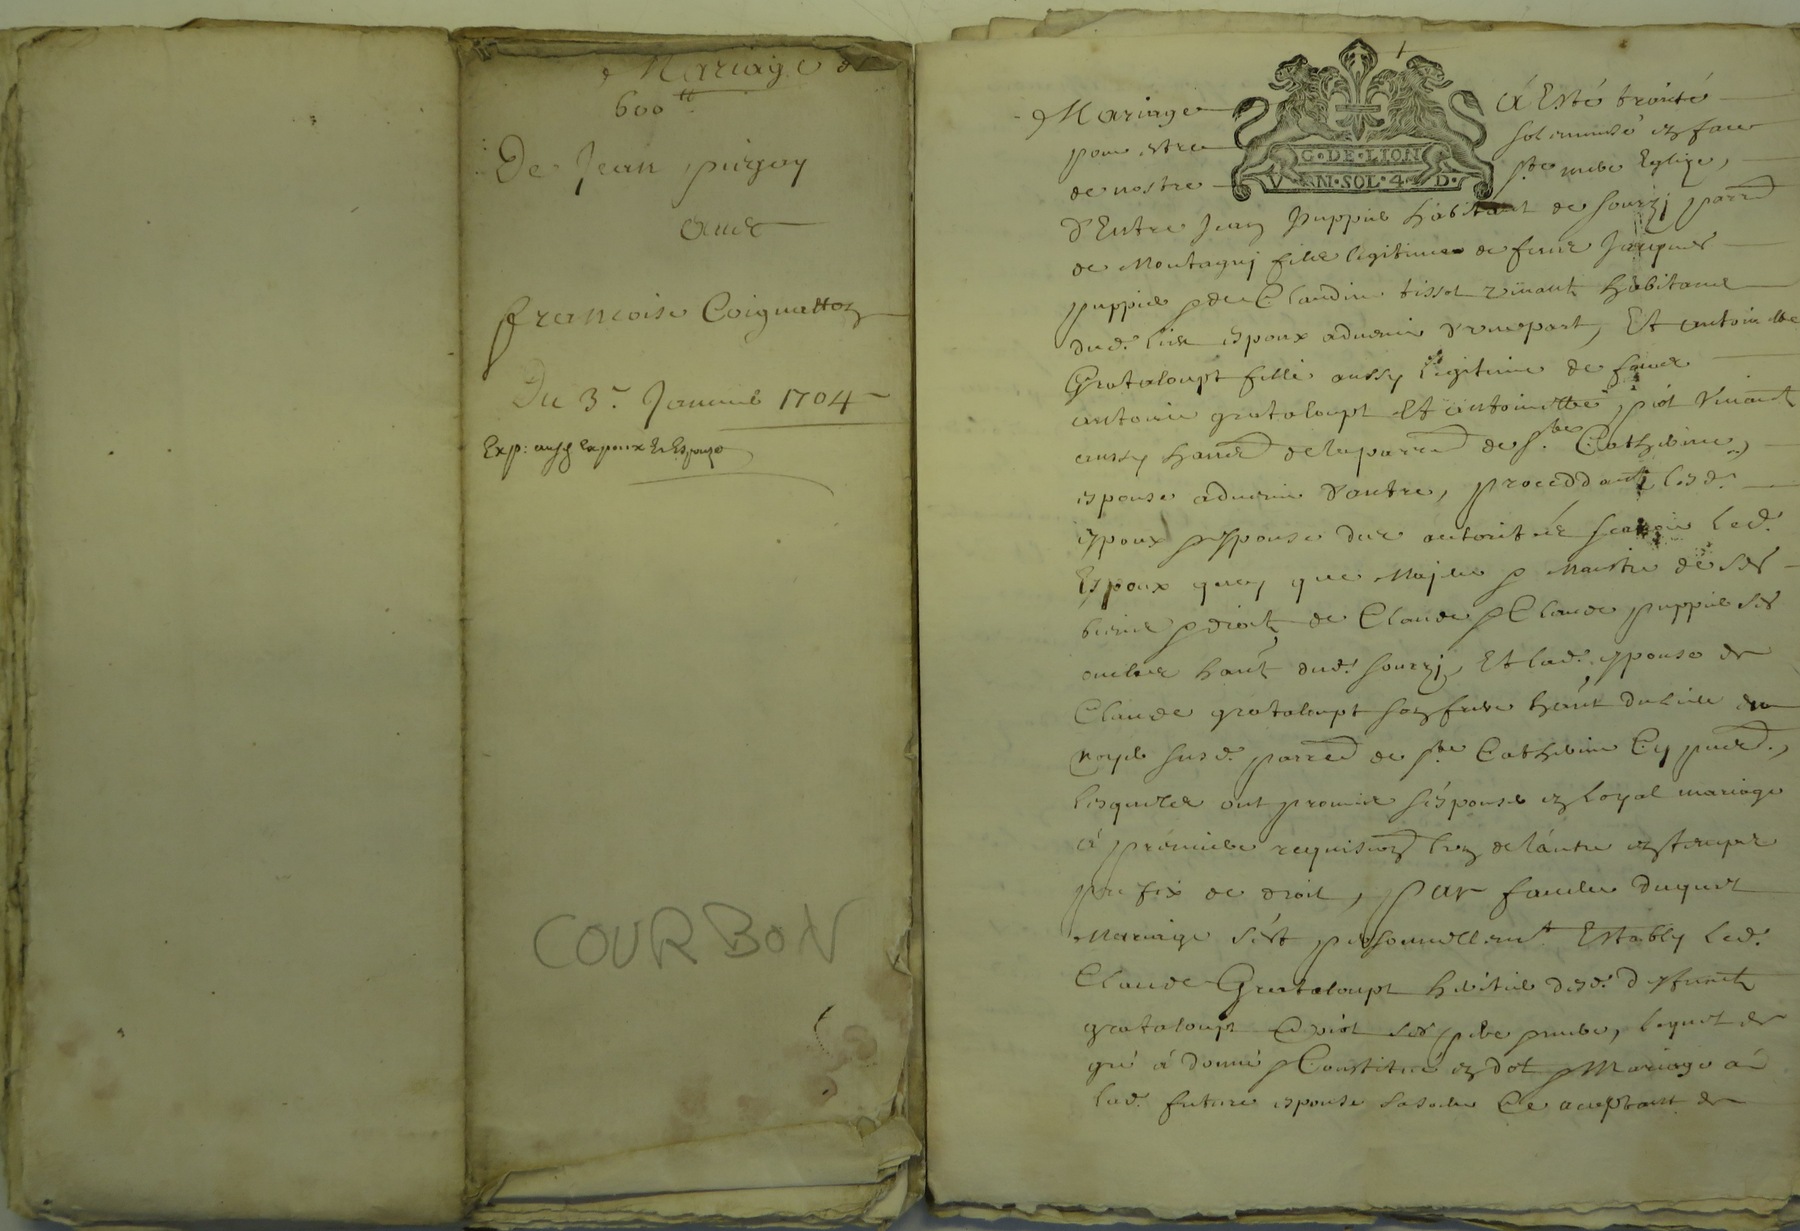 Mariage de
600 tt
De Jean pugey
avec
francoise Coignetton
Du 3e. Janvier 1704
Exp: aux espoux Et Espouse
COURBON
Mariage à Esté traicté
pour estre solemnisé en face
G·DE·LION
de nostre ste mere Eglize,
V N·SOL·4·D·
d'Entre Jean puppier habitant de sourzj parre
de Montagnj filz legitime de feuz Jacques
puppier & de Claudine tissot vivantz habitans
dud. lieu espoux advenir d'une part, Et antoinette
Grataloupt fille aussy legitime de feuz
antoine grataloupt Et antoinette piot vivantz
aussy hans de la parre de ste Catherine,
espouse advenir d'autre, proceddantz lesd.
espoux & espouse des autoritéz sçavoir led.
Espoux quoy que Majeur & Maistre de ses
biens & droitz de Claude & Claude puppier ses
oncles hantz dud. sourzj, Et lad. espouse de
Claude grataloupt son frere hant du lieu du
noyer susd. parre de ste Catherine Cy pnt,
lesquelz ont promis s'espouser en loyal mariage
à premiere requision l'un de l'autre en temps
prefix de droit, par faveur duquel
Mariage s'est personnellemt. Estably led.
Claude Grataloupt heritier desd. deffuntz
grataloupt & piot ses pere & mere, lequel de
gré à donné & Constitué en dot & Mariage à
lad. future espouse sa sœur Ce acceptant de